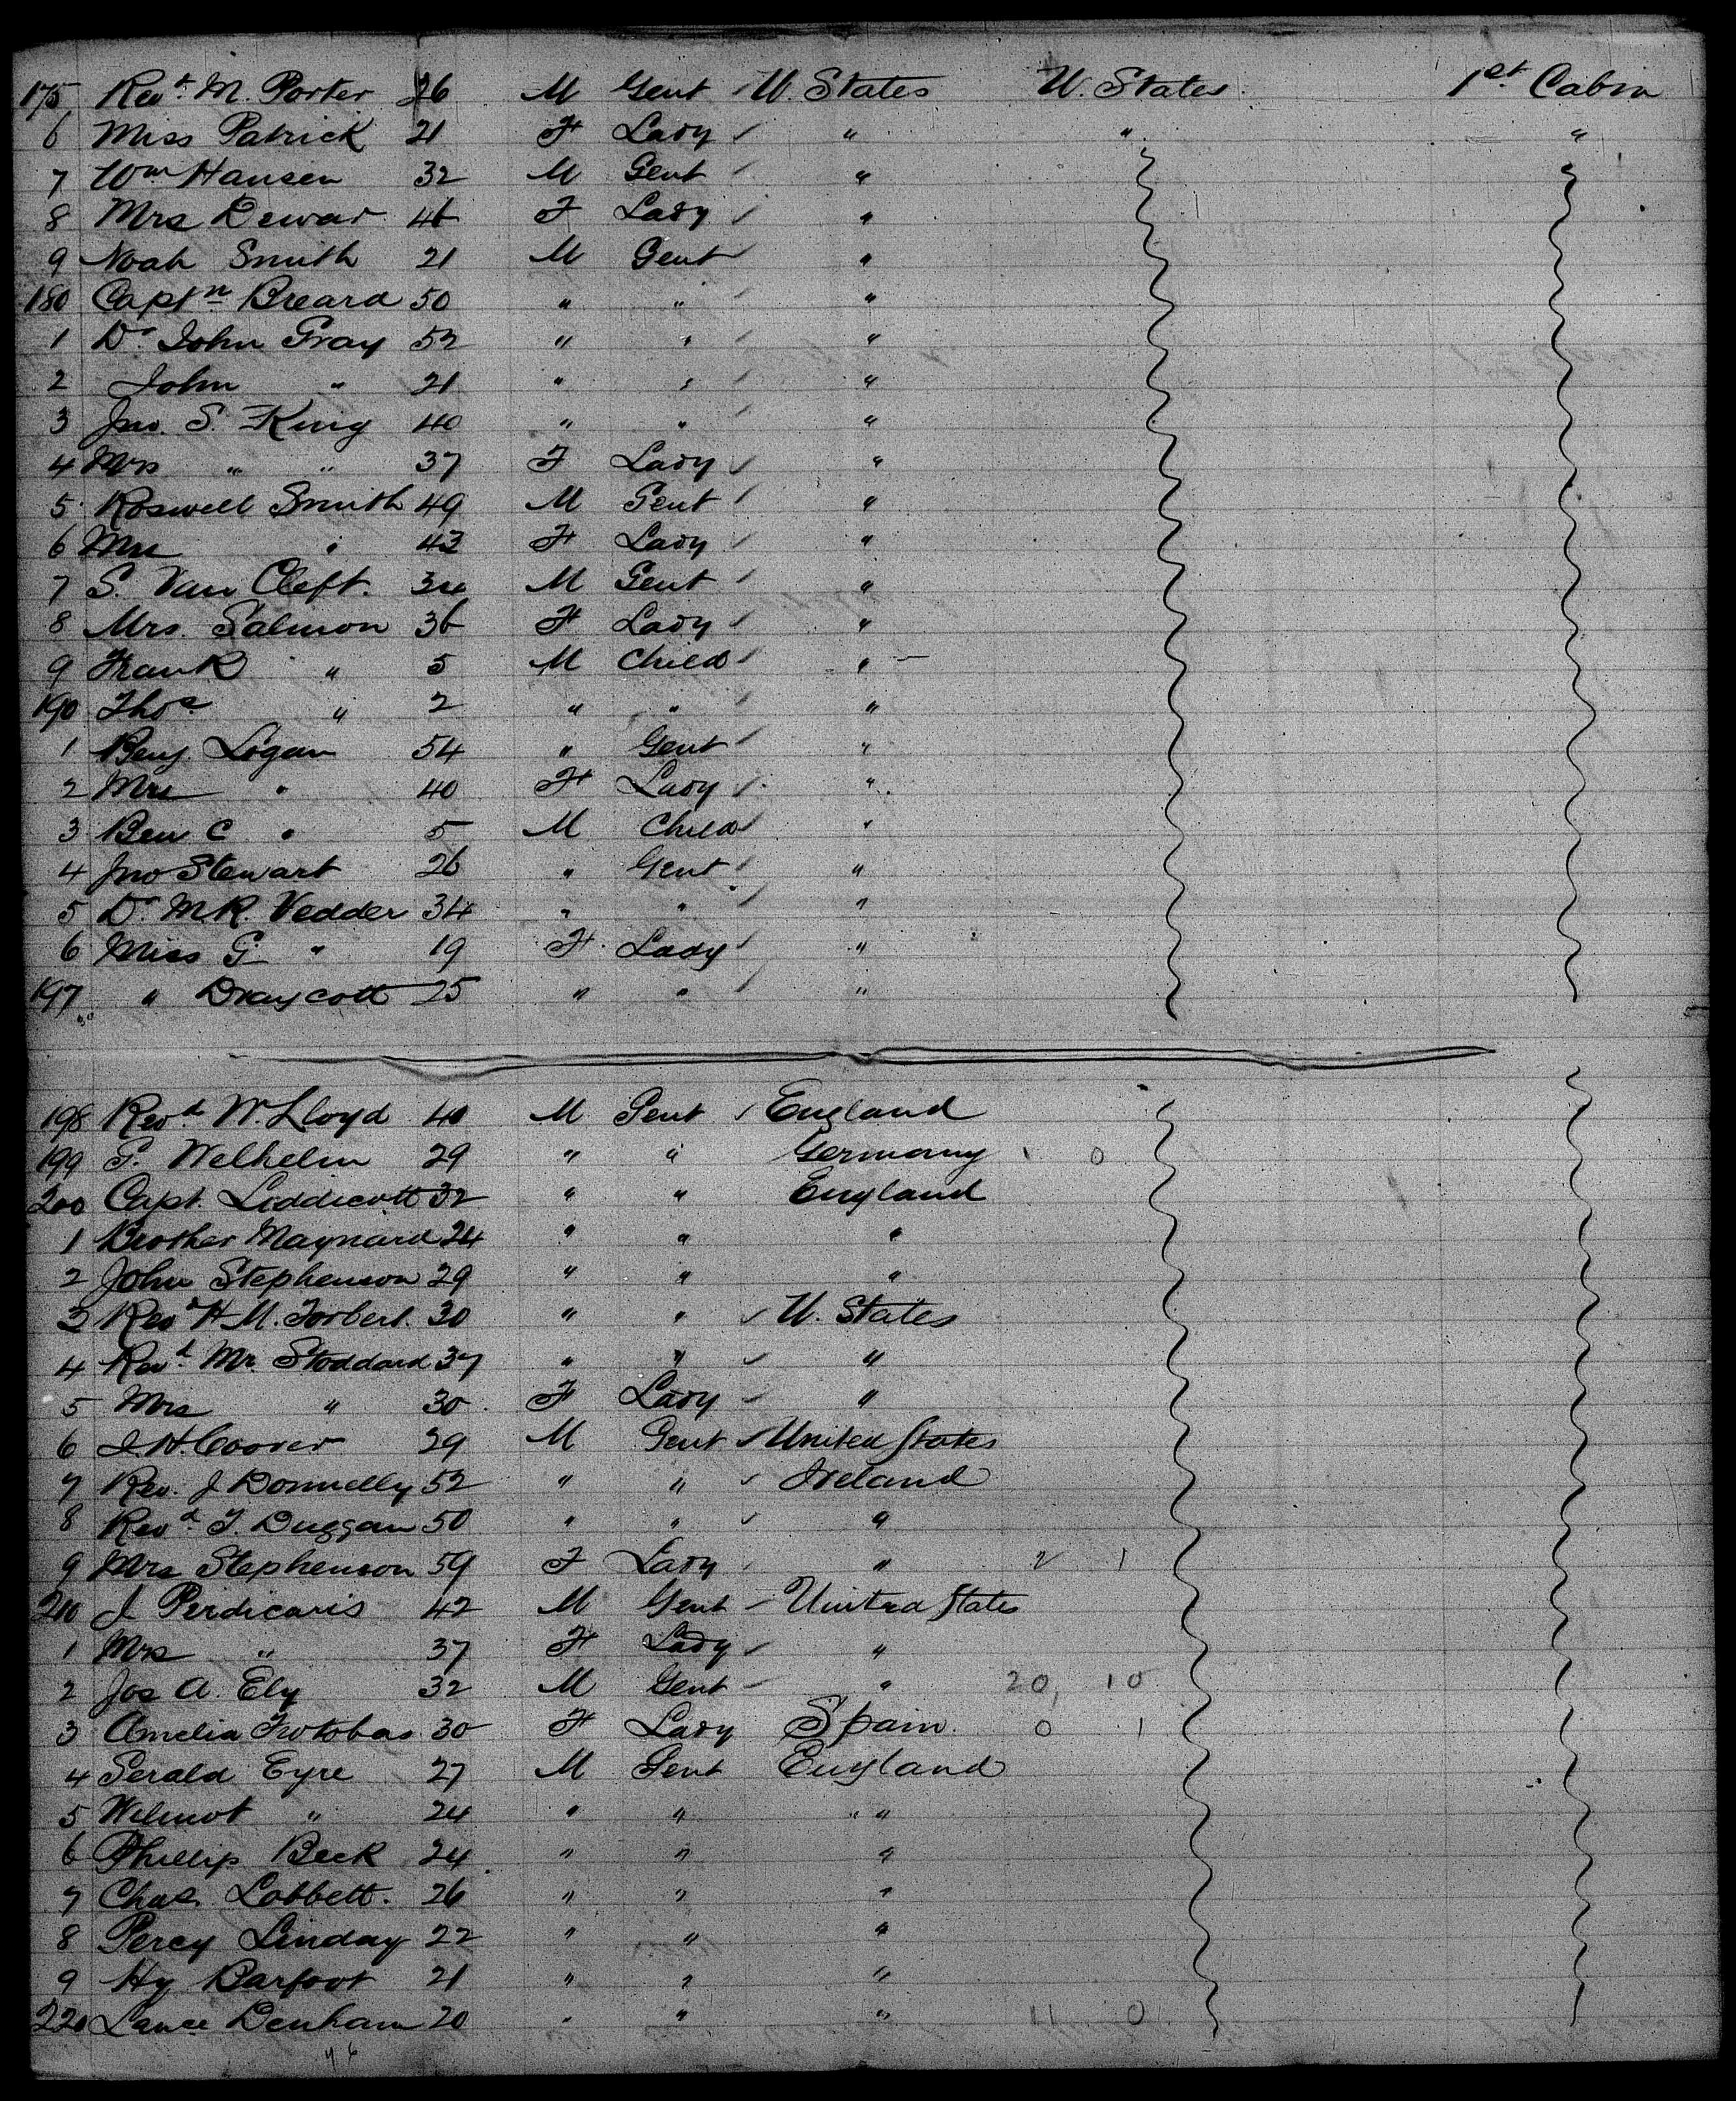 175 Revd. M. Porter 26 M Gent U. States U. States. 1st Cabin
6 Miss Patrick 21 F Lady " " "
7 Wm Hansen 32 M Gent "
8 Mrs Dewar 46 F Lady "
9 Noah Smith 21 M Gent "
180 Captn Breard 50 " " "
1 Dr John Gray 52 " " "
2 John " 21 " " "
3 Jno. S. King 40 " " "
4 Mrs " " 37 F Lady "
5 Roswell Smith 49 M Gent "
6 Mrs " 43 F Lady "
7 S. Van Cleft. 34 M Gent "
8 Mrs. Salmon 36 F Lady "
9 Frank " 5 M Child "
190 Thos " 2 " " "
1 Benj. Logan 54 " Gent "
2 Mrs " 40 F Lady "
3 Ben C " 5 M Child "
4 Jno Stewart 26 " Gent "
5 Dr. M.R. Vedder 34 " " "
6 Miss G " 19 F Lady "
197 " Draycott 25 " " "
198 Revd. W. Lloyd 40 M Gent England
199 G. Welhelm 29 " " Germany 0
200 Capt. Liddicott 32 " " England
1 Brother Maynard 24 " " "
2 John Stephenson 29 " " "
3 Revd H. M. Torbert. 30 " " U. States
4 Revd. Mr. Stoddard 37 " " "
5 Mrs " 30 F Lady "
6 J. H. Coover 29 M Gent United States
7 Rev. J Donnelly 52 " " Ireland
8 Revd. T. Duggan 50 " " "
9 Mrs Stephenson 59 F Lady " 2 1
210 J Perdicaris 42 M Gent United States
1 Mrs " 37 F Lady "
2 Jos A. Ely 32 M Gent " 20, 10
3 Amelia Trotobas 30 F Lady Spain. 0 1
4 Gerald Eyre 27 M Gent England
5 Wilmot " 24 " " "
6 Phillip Beck 24 " " "
7 Chas. Lobbett. 26 " " "
8 Percy Linday 22 " " "
9 Hy Barfoot 21 " " "
220 Lance Denham 20 " " " 11 0